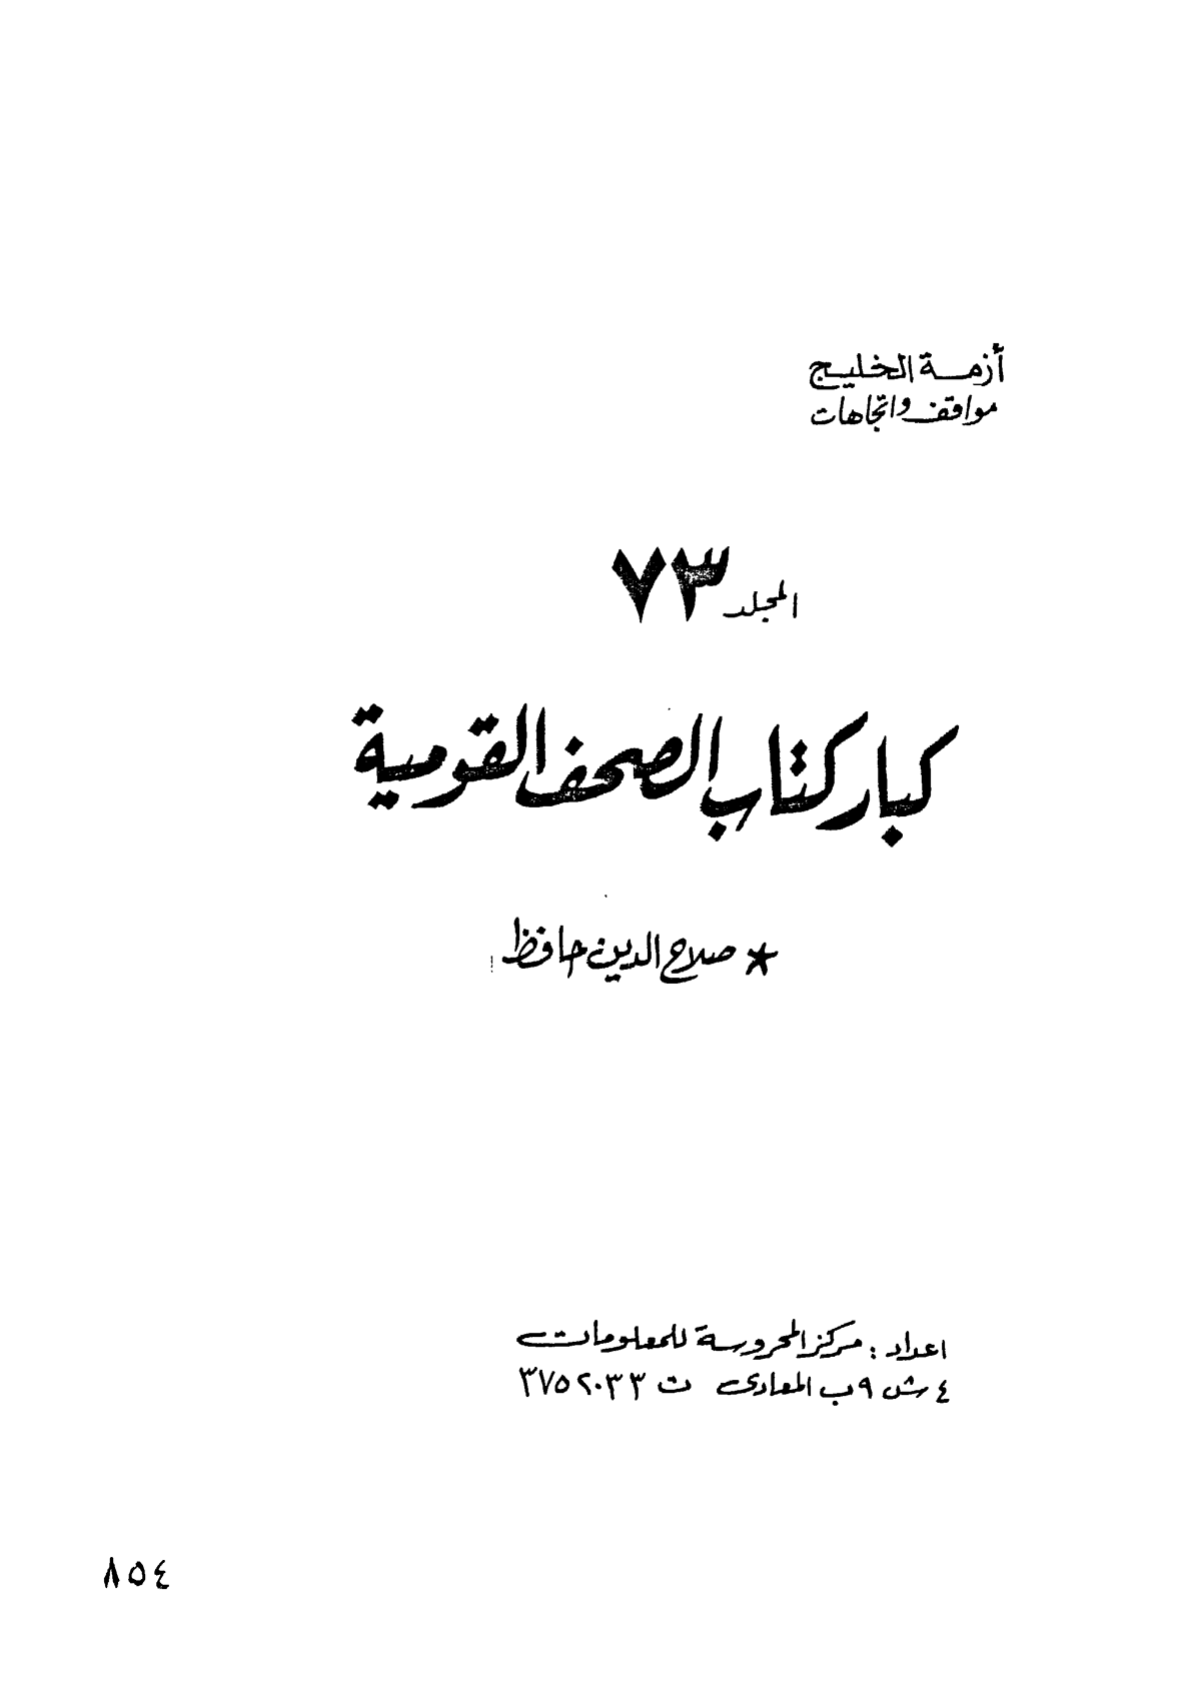 أزمة الخليج
مواقف واتجاهات
المجلد ٧٣
كبار كتاب الصحف القومية
* صلاح الدين حافظ
اعداد : مركز المحروسة للمعلومات
٤ ش ٩ ب المعادى ت ٣٧٥٢٠٣٣
٨٥٤